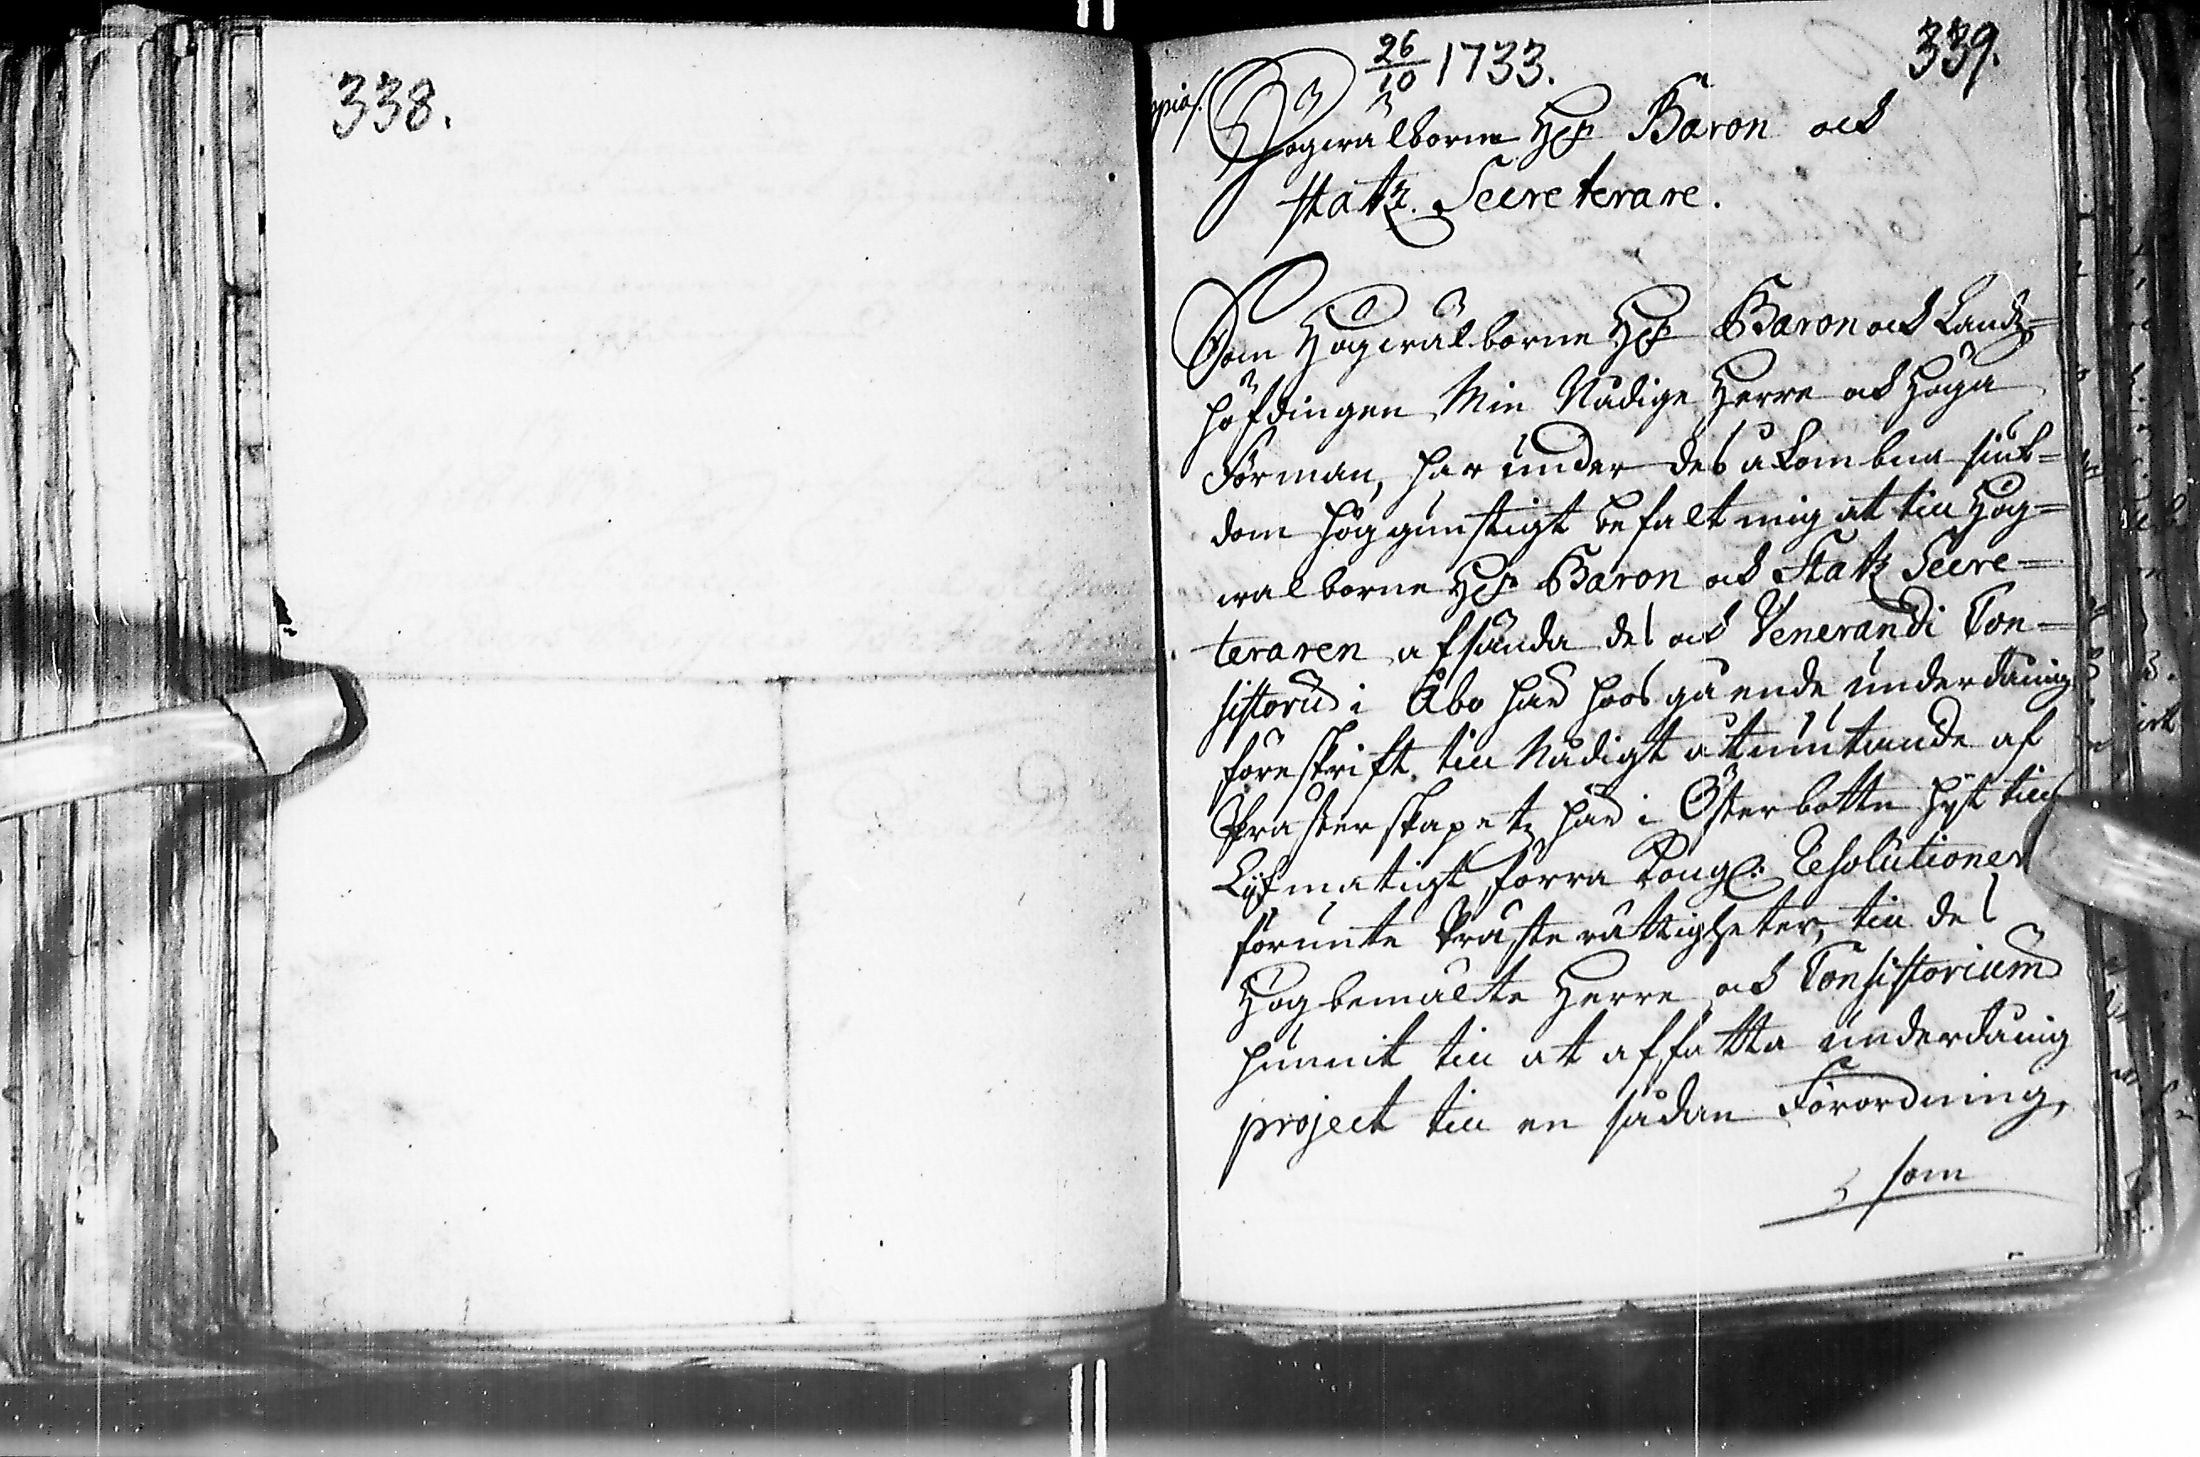 338.
26/10 1733.
339.
Högwälborne Hr Baron och
Statz Secreterare.
Som Högwälborne Hr Baron och Landz=
höfdingen Min Nådige Herre och höga
Förman, har under des åkombna siuk=
dom höggunstigt befalt mig at till Hög=
wälborne Hr Baron och Statz Secre=
teraren afsända des och Venerandi Con=
sistorii i Åbo här hoos gående underdånig
föreskrift till Nådigt åtniutande af
Prästerskapetz här i Österbotten här till
förra Kongl: Resolutioner
förunte Prästerättigheter, till des
Högbemälte Herre och Consistorium
hunnit till at affatta underdånig
project till en sådan Förordning,
som